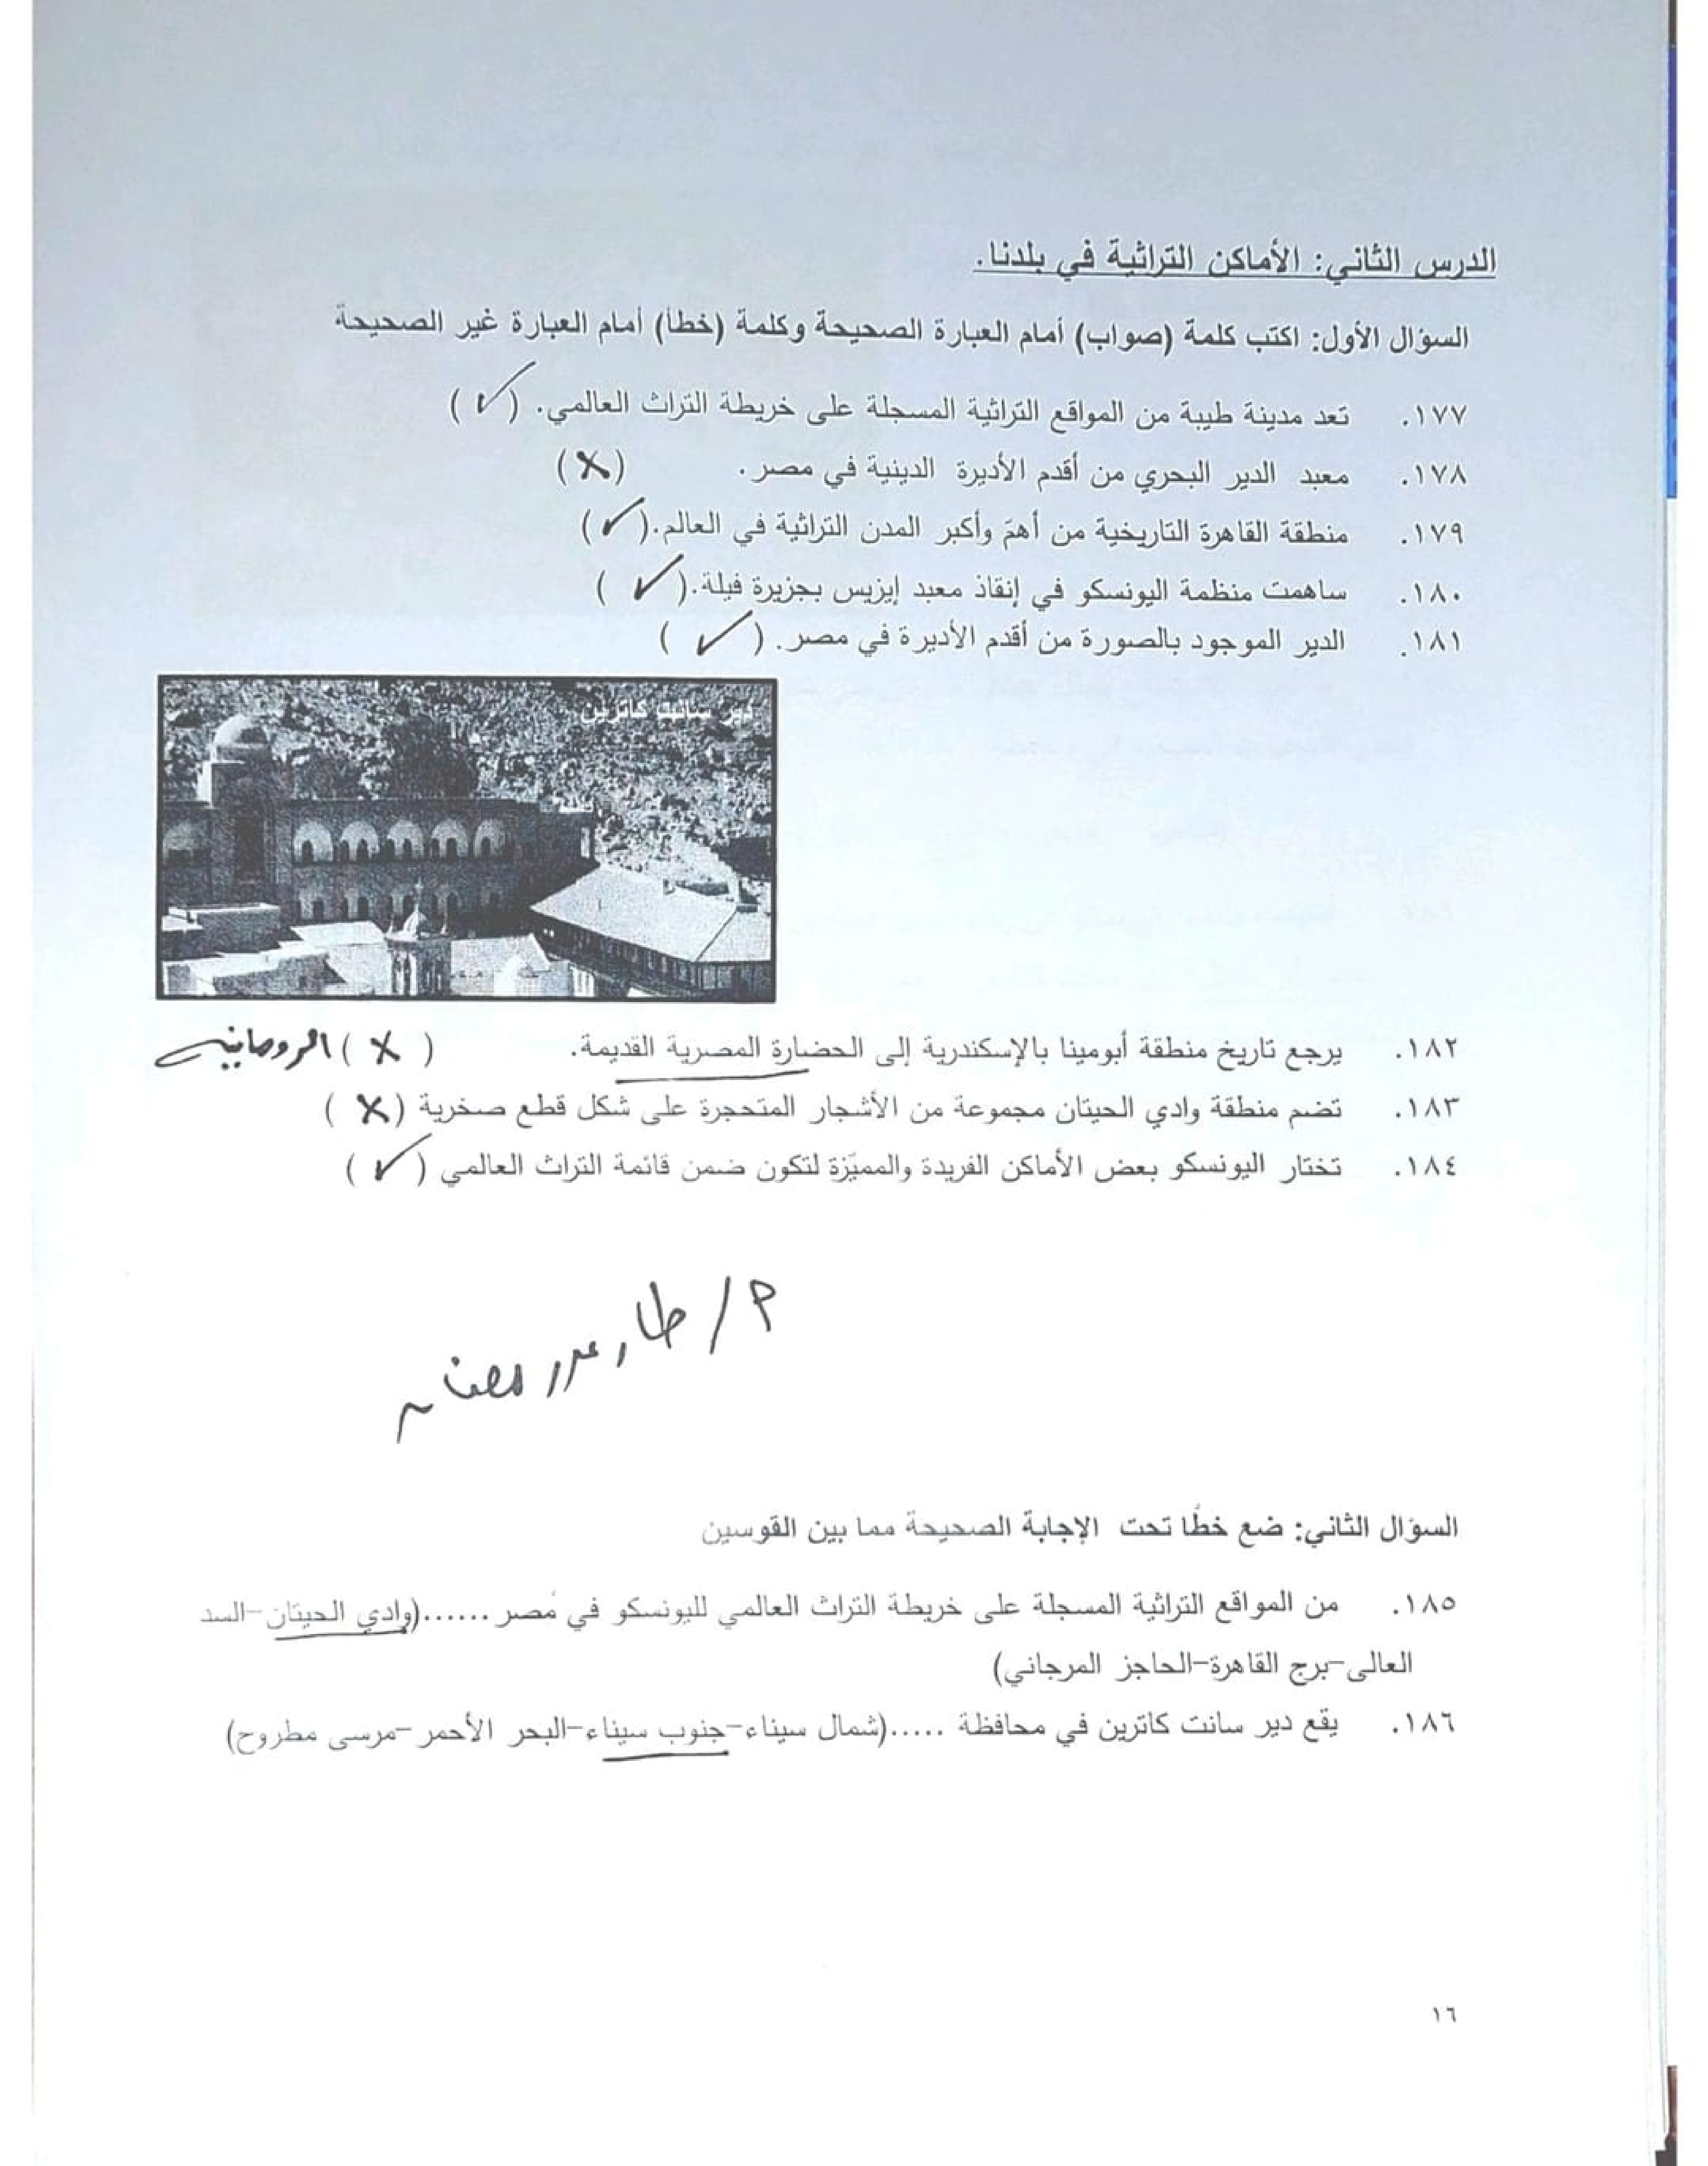 الدرس الثاني: الأماكن التراثية في بلدنا.
السؤال الأول: اكتب كلمة (صواب) أمام العبارة الصحيحة وكلمة (خطأ) أمام العبارة غير الصحيحة
١٧٧. تعد مدينة طيبة من المواقع التراثية المسجلة على خريطة التراث العالمي. (✓)
١٧٨. معبد الدير البحري من أقدم الأديرة الدينية في مصر. (X)
١٧٩. منطقة القاهرة التاريخية من أهمّ وأكبر المدن التراثية في العالم.(✓)
١٨٠. ساهمت منظمة اليونسكو في إنقاذ معبد إيزيس بجزيرة فيلة.(✓)
١٨١. الدير الموجود بالصورة من أقدم الأديرة في مصر. (✓)
دير سانت كاترين
١٨٢. يرجع تاريخ منطقة أبومينا بالإسكندرية إلى الحضارة المصرية القديمة. (X) الرومانية
١٨٣. تضم منطقة وادي الحيتان مجموعة من الأشجار المتحجرة على شكل قطع صخرية (X)
١٨٤. تختار اليونسكو بعض الأماكن الفريدة والمميّزة لتكون ضمن قائمة التراث العالمي (✓)
م/
السؤال الثاني: ضع خطًا تحت الإجابة الصحيحة مما بين القوسين
١٨٥. من المواقع التراثية المسجلة على خريطة التراث العالمي لليونسكو في مصر ......(وادي الحيتان-السد
العالى-برج القاهرة-الحاجز المرجاني)
١٨٦. يقع دير سانت كاترين في محافظة .....(شمال سيناء-جنوب سيناء-البحر الأحمر-مرسى مطروح)
١٦